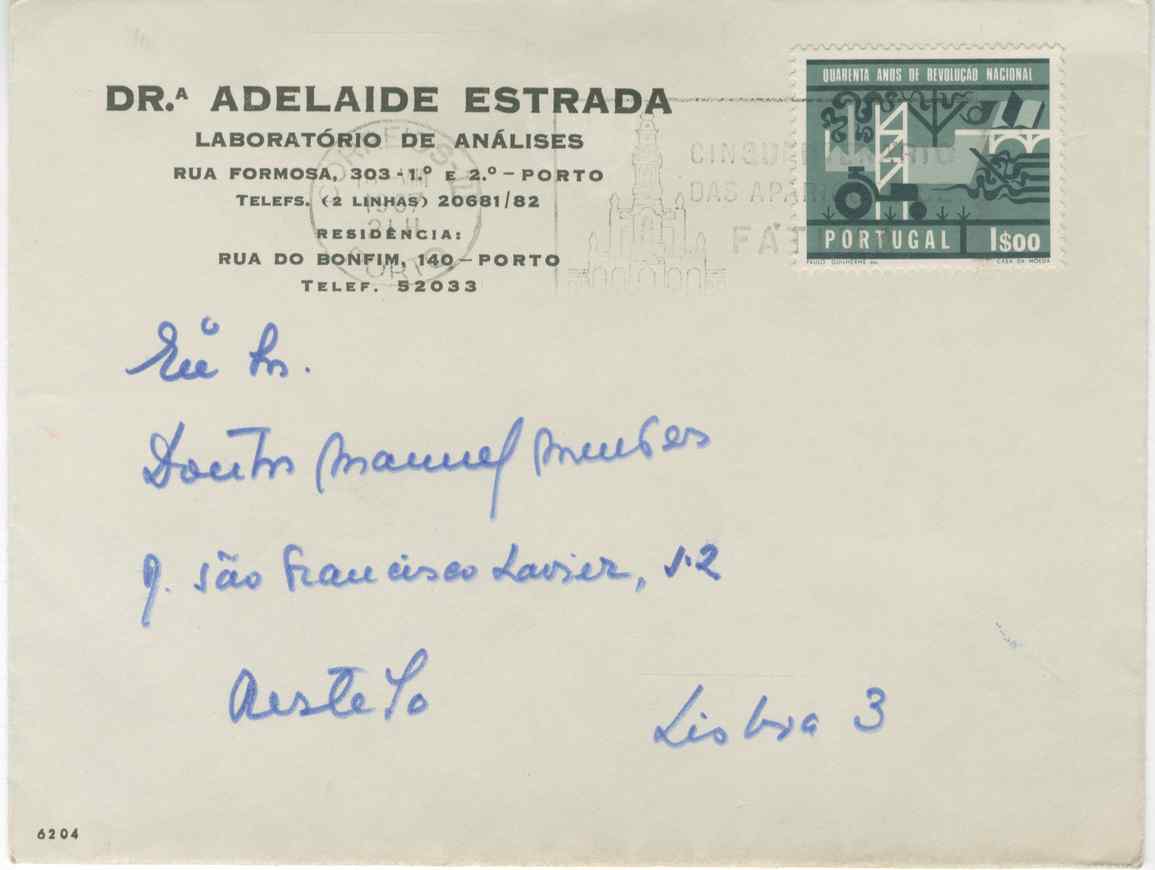 DR.ᴬ ADELAIDE ESTRADA
LABORATÓRIO DE ANÁLISES
RUA FORMOSA, 303-1.º E 2.º – PORTO
TELEFS. (2 LINHAS) 20681/82
RESIDÊNCIA:
RUA DO BONFIM, 140 – PORTO
TELEF. 52033
1967
PORTO
DAS
QUARENTA ANOS DE REVOLUÇÃO NACIONAL
PORTUGAL 1$00
PAULO GUILHERME CASA DA MOEDA
Doutor Manuel Mendes
R. São Francisco Xavier, 12
Restelo
Lisboa 3
6204